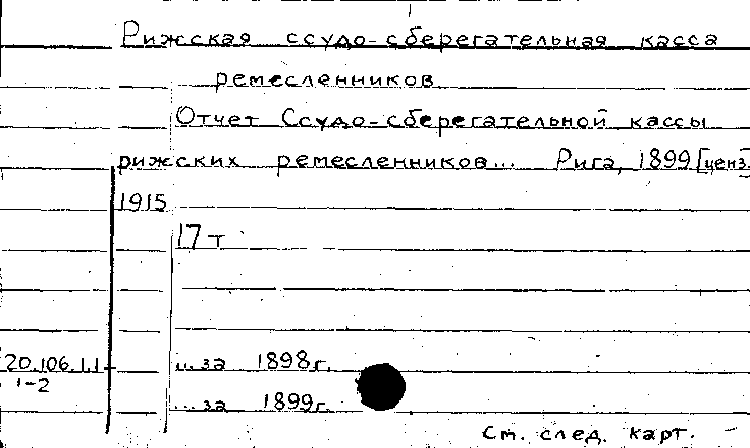 Рижская ссудо-сберегательная касса
ремесленников
Отчет Ссудо-сберегательной кассы
рижских ремесленников... Рига, 1899 [ценз.]
1915
17 т
20.106.1.1-
1-2
...за 1898 г.
...за 1899 г.
См. след. карт.